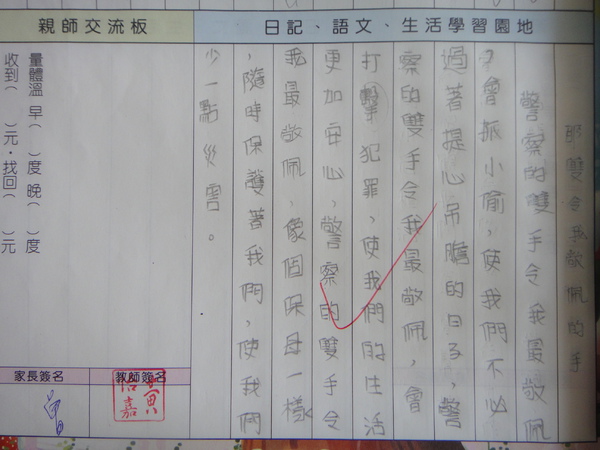 親師交流板
日記、語文、生活學習園地
那雙令我敬佩的手
警察的雙手令我最敬佩
會抓小偷,使我們不必
過著提心吊膽的日子,警
察的雙手令我最敬佩,會
打擊犯罪,使我們的生活
更加安心,警察的雙手令
我最敬佩,像個保母一樣
,隨時保護著我們,使我們
少一點災害。
量體溫 早( )度 晚( )度
收到( )元・找回( )元
教師簽名
家長簽名
黃
怡嘉